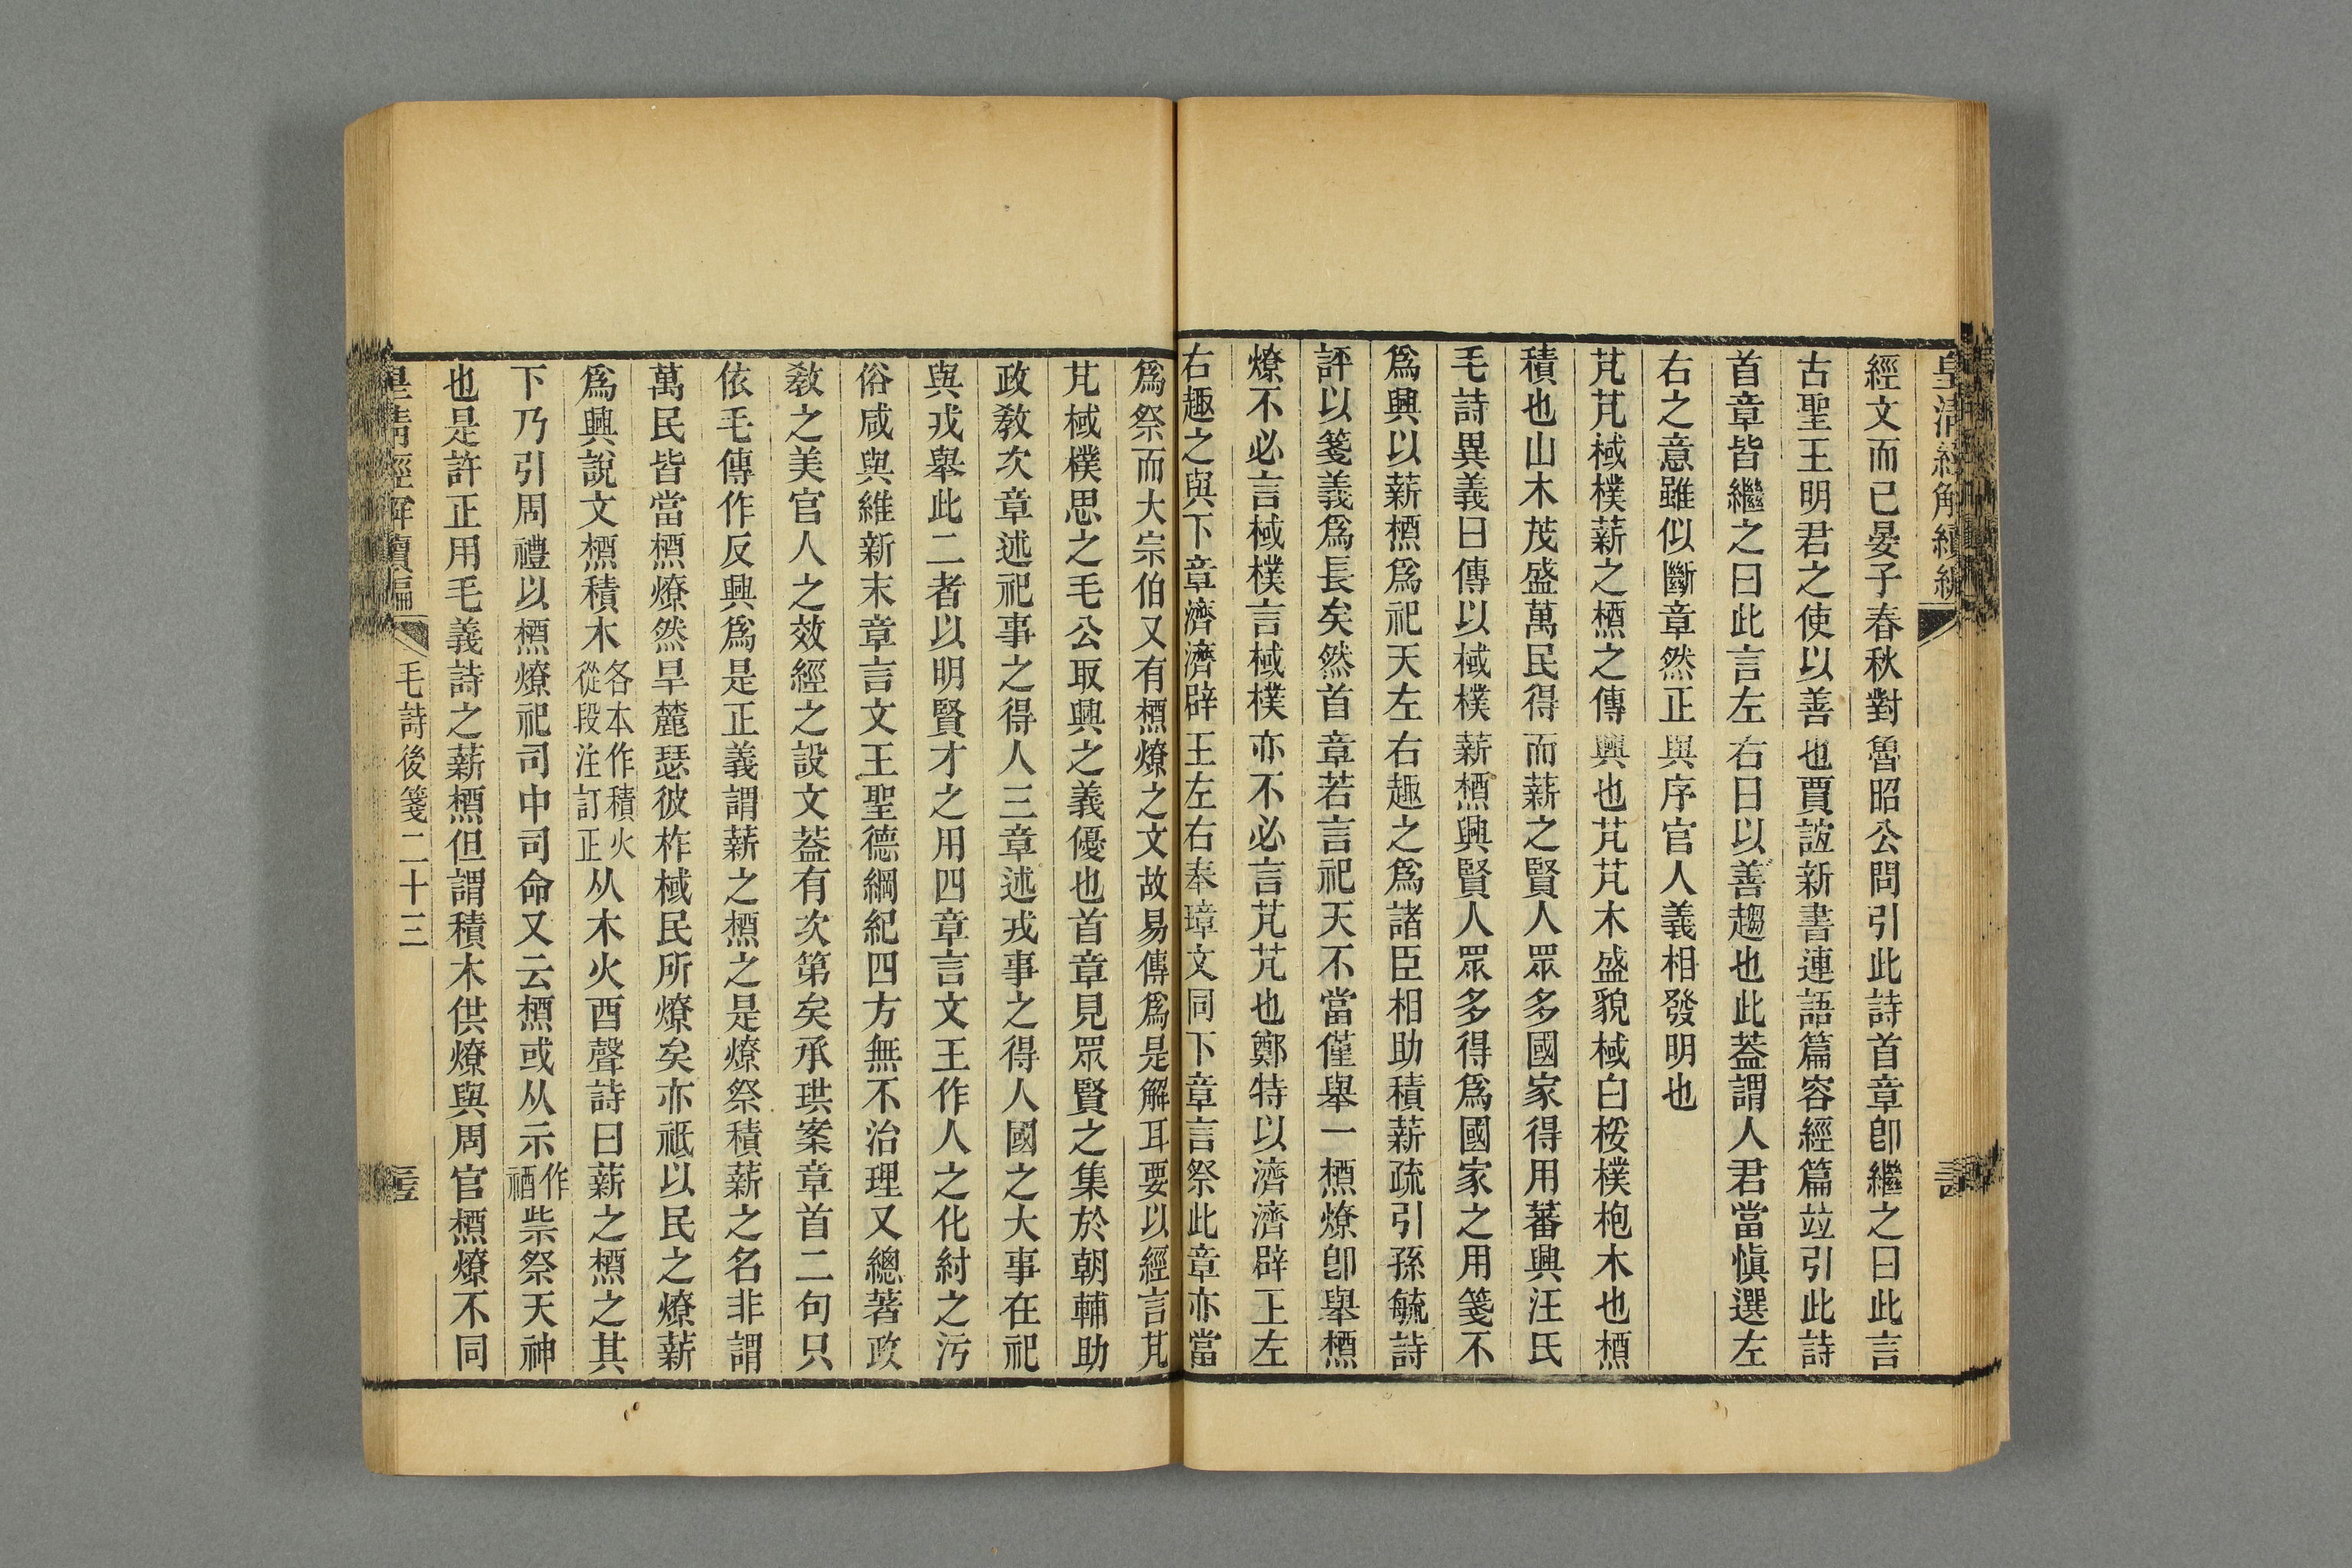 皇清經解續編
經文而已晏子春秋對魯昭公問引此詩首章卽繼之曰此言
古聖王明君之使以善也賈誼新書連語篇容經篇竝引此詩
首章皆繼之曰此言左右日以善趨也此葢謂人君當愼選左
右之意雖似斷章然正與序官人義相發明也
芃芃棫樸薪之槱之傳興也芃芃木盛貌棫白桵樸枹木也槱
積也山木茂盛萬民得而薪之賢人眾多國家得用蕃興汪氏
毛詩異義曰傳以棫樸薪槱興賢人眾多得爲國家之用箋不
爲興以薪槱爲祀天左右趣之爲諸臣相助積薪疏引孫毓詩
評以箋義爲長矣然首章若言祀天不當僅舉一槱燎卽舉槱
燎不必言棫樸言棫樸亦不必言芃芃也鄭特以濟濟辟王左
右趣之與下章濟濟辟王左右奉璋文同下章言祭此章亦當
爲祭而大宗伯又有槱燎之文故易傳爲是解耳要以經言芃
芃棫樸思之毛公取興之義優也首章見眾賢之集於朝輔助
政敎次章述祀事之得人三章述戎事之得人國之大事在祀
與戎舉此二者以明賢才之用四章言文王作人之化紂之污
俗咸與維新末章言文王聖德綱紀四方無不治理又總著政
敎之美官人之效經之設文葢有次第矣承珙案章首二句只
依毛傳作反興爲是正義謂薪之槱之是燎祭積薪之名非謂
萬民皆當槱燎然旱麓瑟彼柞棫民所燎矣亦祇以民之燎薪
爲興說文槱積木各本作積火從段注訂正从木火酉聲詩曰薪之槱之其
下乃引周禮以槱燎祀司中司命又云槱或从示作䄛祡祭天神
也是許正用毛義詩之薪槱但謂積木供燎與周官槱燎不同
皇清經解續編
毛詩後箋二十三